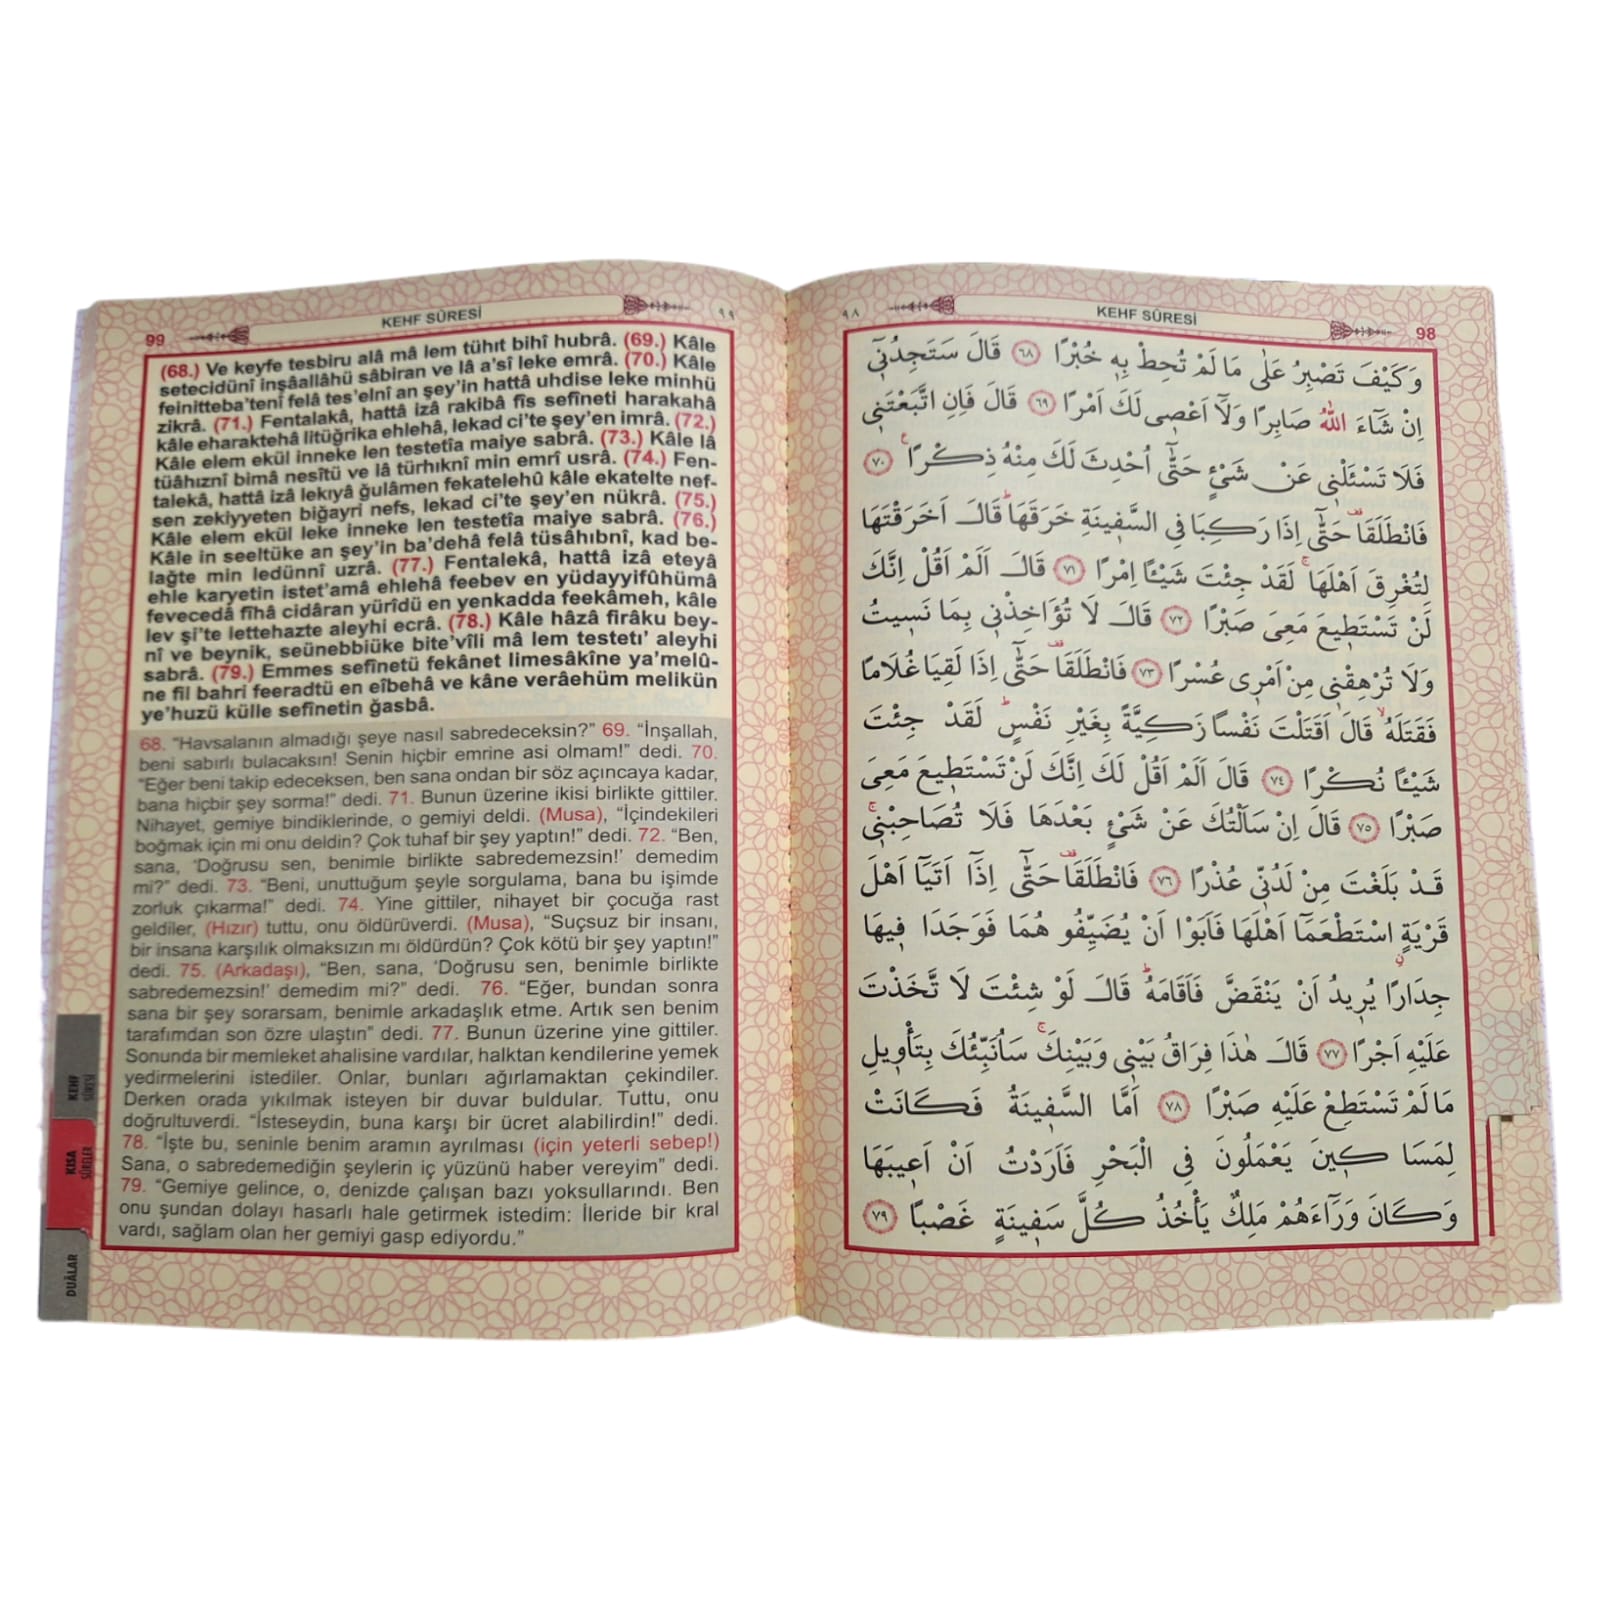 99
KEHF SÛRESİ
٩٩
(68.) Ve keyfe tesbiru alâ mâ lem tühıt bihî hubrâ. (69.) Kâle
setecidünî inşâallâhü sâbiran ve lâ a'sî leke emrâ. (70.) Kâle
feinitteba'tenî felâ tes'elnî an şey'in hattâ uhdise leke minhü
zikrâ. (71.) Fentalakâ, hattâ izâ rakibâ fîs sefîneti harakahâ
kâle eharaktehâ litüğrika ehlehâ, lekad ci'te şey'en imrâ. (72.)
Kâle elem ekül inneke len testetîa maiye sabrâ. (73.) Kâle lâ
tüâhıznî bimâ nesîtü ve lâ türhıknî min emrî usrâ. (74.) Fen-
talekâ, hattâ izâ lekıyâ ğulâmen fekatelehû kâle ekatelte nef-
sen zekiyyeten biğayri nefs, lekad ci'te şey'en nükrâ. (75.)
Kâle elem ekül leke inneke len testetîa maiye sabrâ. (76.)
Kâle in seeltüke an şey'in ba'dehâ felâ tüsâhıbnî, kad be-
lağte min ledünnî uzrâ. (77.) Fentalekâ, hattâ izâ eteyâ
ehle karyetin istet'amâ ehlehâ feebev en yüdayyifûhümâ
fevecedâ fîhâ cidâran yürîdü en yenkadda feekâmeh, kâle
lev şi'te lettehazte aleyhi ecrâ. (78.) Kâle hâzâ firâku bey-
nî ve beynik, seünebbiüke bite'vîli mâ lem testetı' aleyhi
sabrâ. (79.) Emmes sefînetü fekânet limesâkîne ya'melû-
ne fil bahri feeradtü en eîbehâ ve kâne verâehüm melikün
ye'huzü külle sefînetin ğasbâ.
68. “Havsalanın almadığı şeye nasıl sabredeceksin?” 69. “İnşallah,
beni sabırlı bulacaksın! Senin hiçbir emrine asi olmam!” dedi. 70.
“Eğer beni takip edeceksen, ben sana ondan bir söz açıncaya kadar,
bana hiçbir şey sorma!” dedi. 71. Bunun üzerine ikisi birlikte gittiler.
Nihayet, gemiye bindiklerinde, o gemiyi deldi. (Musa), “İçindekileri
boğmak için mi onu deldin? Çok tuhaf bir şey yaptın!” dedi. 72. “Ben,
sana, ‘Doğrusu sen, benimle birlikte sabredemezsin!’ demedim
mi?” dedi. 73. “Beni, unuttuğum şeyle sorgulama, bana bu işimde
zorluk çıkarma!” dedi. 74. Yine gittiler, nihayet bir çocuğa rast
geldiler, (Hızır) tuttu, onu öldürüverdi. (Musa), “Suçsuz bir insanı,
bir insana karşılık olmaksızın mı öldürdün? Çok kötü bir şey yaptın!”
dedi. 75. (Arkadaşı), “Ben, sana, ‘Doğrusu sen, benimle birlikte
sabredemezsin!’ demedim mi?” dedi. 76. “Eğer, bundan sonra
sana bir şey sorarsam, benimle arkadaşlık etme. Artık sen benim
tarafımdan son özre ulaştın” dedi. 77. Bunun üzerine yine gittiler.
Sonunda bir memleket ahalisine vardılar, halktan kendilerine yemek
yedirmelerini istediler. Onlar, bunları ağırlamaktan çekindiler.
Derken orada yıkılmak isteyen bir duvar buldular. Tuttu, onu
doğrultuverdi. “İsteseydin, buna karşı bir ücret alabilirdin!” dedi.
78. “İşte bu, seninle benim aramın ayrılması (için yeterli sebep!)
Sana, o sabredemediğin şeylerin iç yüzünü haber vereyim” dedi.
79. “Gemiye gelince, o, denizde çalışan bazı yoksullarındı. Ben
onu şundan dolayı hasarlı hale getirmek istedim: İleride bir kral
vardı, sağlam olan her gemiyi gasp ediyordu.”
KEHF
SÛRESİ
KISA
SÛRELER
DUÂLAR
٩٨
KEHF SÛRESİ
98
وَكَيْفَ تَصْبِرُ عَلٰى مَا لَمْ تُحِطْ بِه۪ خُبْرًا ٦٨ قَالَ سَتَجِدُن۪ٓي
اِنْ شَٓاءَ اللّٰهُ صَابِرًا وَلَٓا اَعْص۪ي لَكَ اَمْرًا ٦٩ قَالَ فَاِنِ اتَّبَعْتَن۪ي
فَلَا تَسْـَٔلْن۪ي عَنْ شَيْءٍ حَتّٰٓى اُحْدِثَ لَكَ مِنْهُ ذِكْرًا۟ ٧٠
فَانْطَلَقَا۠ حَتّٰٓى اِذَا رَكِبَا فِي السَّف۪ينَةِ خَرَقَهَاۜ قَالَ اَخَرَقْتَهَا
لِتُغْرِقَ اَهْلَهَاۚ لَقَدْ جِئْتَ شَيْـًٔا اِمْرًا ٧١ قَالَ اَلَمْ اَقُلْ اِنَّكَ
لَنْ تَسْتَط۪يعَ مَعِيَ صَبْرًا ٧٢ قَالَ لَا تُؤَاخِذْن۪ي بِمَا نَس۪يتُ
وَلَا تُرْهِقْن۪ي مِنْ اَمْر۪ي عُسْرًا ٧٣ فَانْطَلَقَا۠ حَتّٰٓى اِذَا لَقِيَا غُلَامًا
فَقَتَلَهُۙ قَالَ اَقَتَلْتَ نَفْسًا زَكِيَّةً بِغَيْرِ نَفْسٍۜ لَقَدْ جِئْتَ
شَيْـًٔا نُكْرًا ٧٤ قَالَ اَلَمْ اَقُلْ لَكَ اِنَّكَ لَنْ تَسْتَط۪يعَ مَعِيَ
صَبْرًا ٧٥ قَالَ اِنْ سَاَلْتُكَ عَنْ شَيْءٍ بَعْدَهَا فَلَا تُصَاحِبْن۪يۚ
قَدْ بَلَغْتَ مِنْ لَدُنّ۪ي عُذْرًا ٧٦ فَانْطَلَقَا۠ حَتّٰٓى اِذَٓا اَتَيَٓا اَهْلَ
قَرْيَةٍۨ اسْتَطْعَمَٓا اَهْلَهَا فَاَبَوْا اَنْ يُضَيِّفُوهُمَا فَوَجَدَا ف۪يهَا
جِدَارًا يُر۪يدُ اَنْ يَنْقَضَّ فَاَقَامَهُۜ قَالَ لَوْ شِئْتَ لَا تَّخَذْتَ
عَلَيْهِ اَجْرًا ٧٧ قَالَ هٰذَا فِرَاقُ بَيْن۪ي وَبَيْنِكَۚ سَاُنَبِّئُكَ بِتَأْو۪يلِ
مَا لَمْ تَسْتَطِعْ عَلَيْهِ صَبْرًا ٧٨ اَمَّا السَّف۪ينَةُ فَكَانَتْ
لِمَسَاك۪ينَ يَعْمَلُونَ فِي الْبَحْرِ فَاَرَدْتُ اَنْ اَع۪يبَهَا
وَكَانَ وَرَٓاءَهُمْ مَلِكٌ يَأْخُذُ كُلَّ سَف۪ينَةٍ غَصْبًا ٧٩